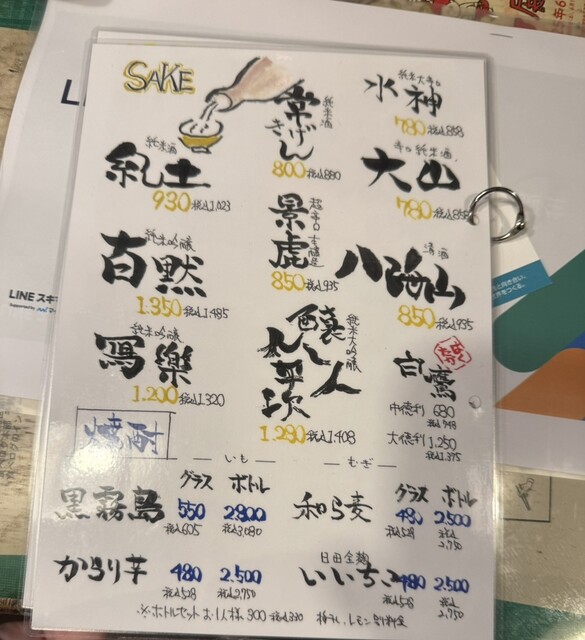 SAKE
純米酒
常きげん
800 税込880
純米大辛口
水神
780 税込858
純米酒
紀土
930 税込1,023
辛口純米酒
大山
780 税込858
純米吟醸
百黙
1.350 税込1,485
超辛口 本醸造
景虎
850 税込935
清酒
八海山
850 税込935
純米吟醸
寫樂
1.200 税込1,320
純米大吟醸
醸し人
九平次
1.280 税込1,408
白鷹
中徳利 680
税込748
大徳利 1.250
税込1.375
焼酎
いも
むぎ
グラス ボトル
グラス ボトル
黒霧島 550 2800
税込605 税込3,080
和ら麦 480 2.500
税込528 税込2,750
からり芋 480 2.500
税込528 税込2,750
日田全麹
いいちこ 480 2.500
税込528 税込2,750
※ボトルセット お1人様 300 税込330
LINE スキ